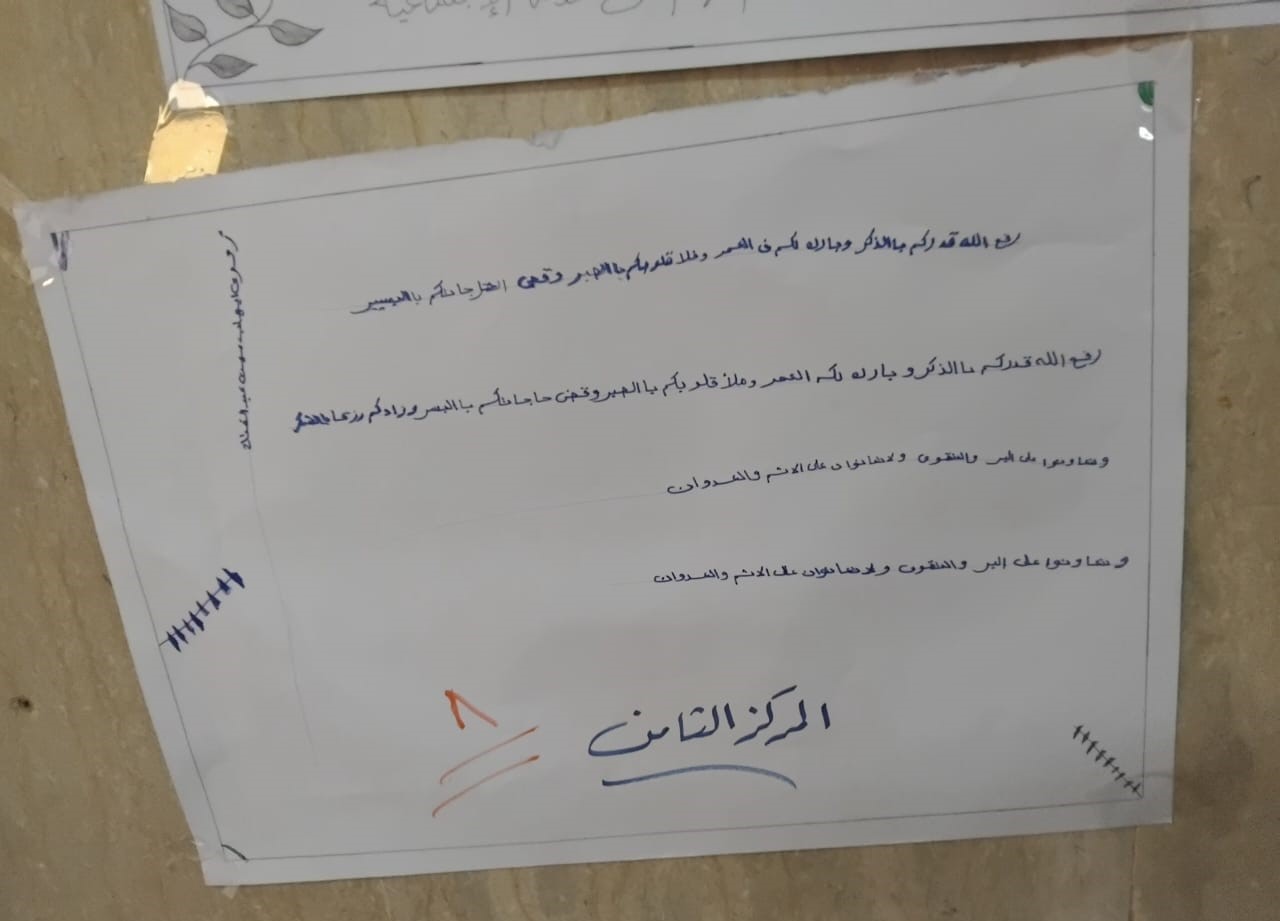 الإجتماعية
رفع الله قدركم باالذكر وبارك لكم فى العمر وملا قلوبكم باالصبر وقضى حاجاتكم باالتيسير
رفع الله قدركم باالذكر وبارك لكم العمر وملأ قلوبكم باالصبر وقضى حاجاتكم باليسر وزادكم
وتعاونوا على البر والتقوى ولاتعانوان على الاثم والعدوان
وتعاونوا على البر والتقوى ولاتعانوان على الاثم والعدوان
المركز الثامن
٨